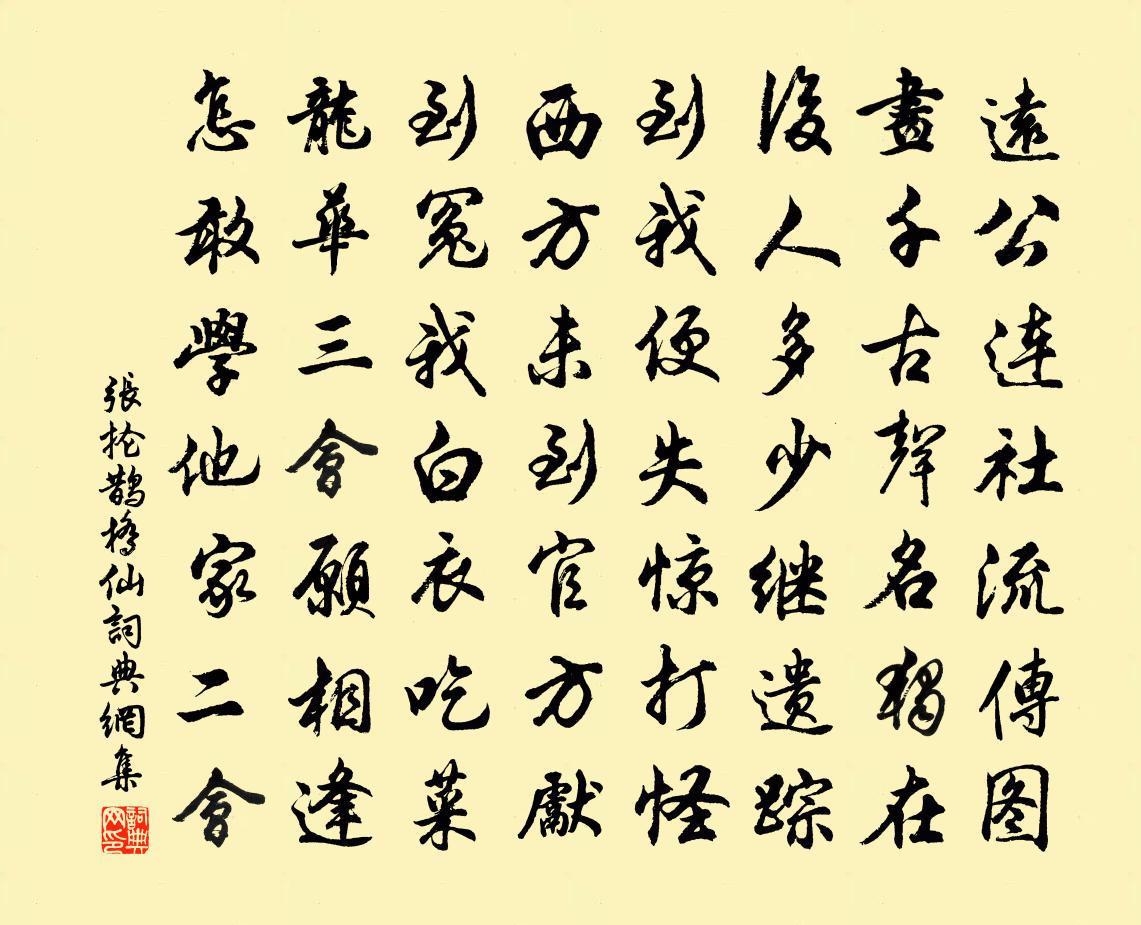 遠公連社流傳图
畫千古聲名獨在
後人多少继遗踪
到我便失惊打怪
西方未到官方獻
到冤我白衣吃菜
龍華三會願相逢
怎敢學他家二會
張抡鵲橋仙詞典網集
詞典网印